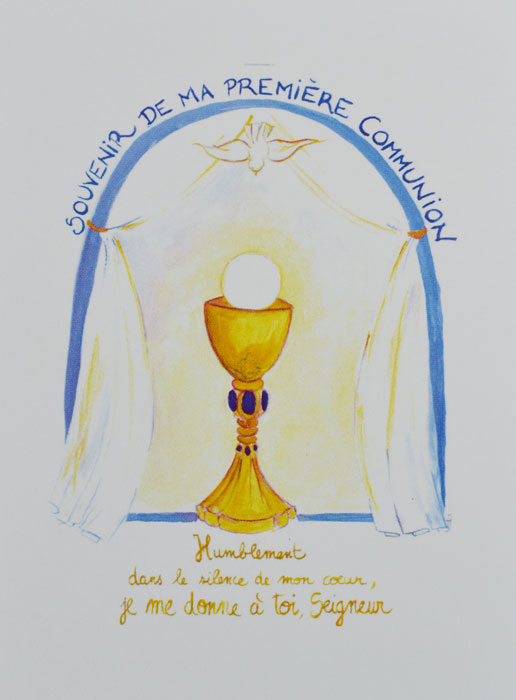 SOUVENIR DE MA PREMIÈRE COMMUNION
Humblement
dans le silence de mon coeur,
je me donne à toi, Seigneur